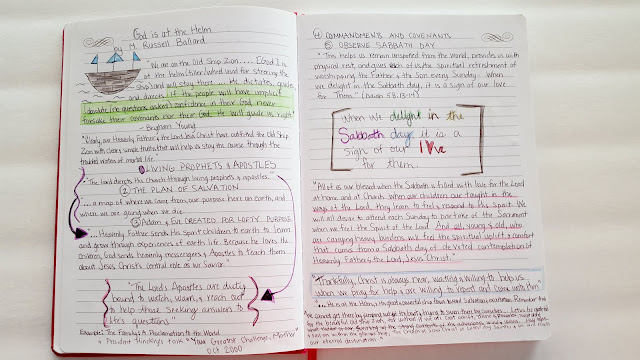 God is at the Helm
by M. Russell Ballard
"We are on the Old Ship Zion.... [God] is
at the helm (tiller/wheel used for steering the
ship) and will stay there... He dictates, guides,
and directs. If the people will have implicit
(absolute/no questions asked) confidence in their God, never
forsake their covenants nor their God, He will guide us right."
- Brigham Young
"Clearly, our Heavenly Father & the Lord Jesus Christ have outfitted the Old Ship
Zion with clear & simple truths that will help us stay the course through the
troubled waters of mortal life."
① LIVING PROPHETS & APOSTLES
"The Lord directs His Church through living prophets & apostles."
② THE PLAN OF SALVATION
... a map of where we came from, our purpose here on earth, and
where we are going when we die.
③ Adam & Eve CREATED FOR LOFTY PURPOSE
... Heavenly Father sends His Spirit children to earth to learn
and grow through experiences of earth life. Because He loves His
children, God sends heavenly messengers & Apostles to teach them
about Jesus Christ's central role as our Savior."
"The Lord's Apostles are duty
bound to watch, warn, & reach out
to help those seeking answers to
life's questions."
Example: The Family: A Proclamation to the World
& President Hinckley's talk "Your Greatest Challenge, Mother"
Oct 2000
④ COMMANDMENTS AND COVENANTS
⑤ OBSERVE SABBATH DAY
"This helps us remain unspotted from the world, provides us with
physical rest, and gives each of us the spiritual refreshment of
worshipping the Father & the Son every Sunday. When
we delight in the Sabbath day, it is a sign of our love
for Them." (Isaiah 58:13-14)
When we delight in the
Sabbath day, it is a
sign of our love
for them.
"All of us are blessed when the Sabbath is filled with love for the Lord
at home and at Church. When our children are taught in the
ways of the Lord, they learn to feel & respond to His Spirit. We
will all desire to attend each Sunday to partake of the Sacrament
when we feel the Spirit of the Lord. And all, young & old, who
are carrying heavy burdens will feel the spiritual uplift & comfort
that comes from a Sabbath day of devoted contemplation of
Heavenly Father & the Lord, Jesus Christ."
"Thankfully, Christ is always near, waiting & willing to help us
when we pray for help & are willing to repent and come unto Him"